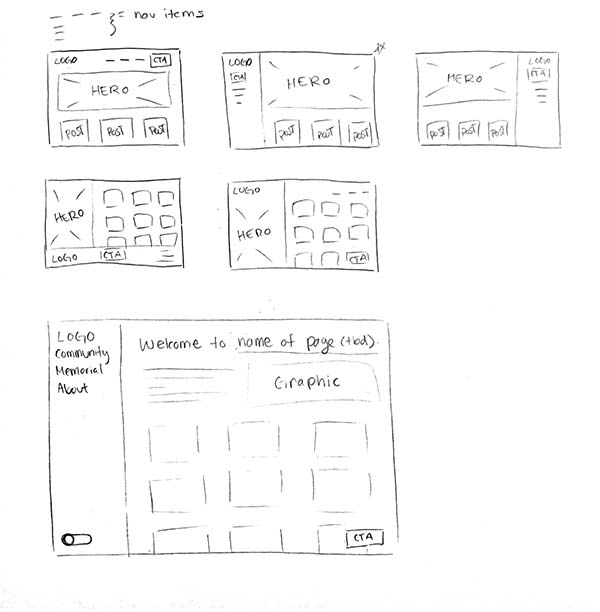 = nav items
LOGO CTA
HERO
POST POST POST
LOGO
CTA
HERO
POST POST POST
HERO
LOGO
CTA
POST POST POST
HERO
LOGO CTA
LOGO
HERO
CTA
LOGO
Community
Memorial
About
Welcome to name of page (tbd).
Graphic
CTA